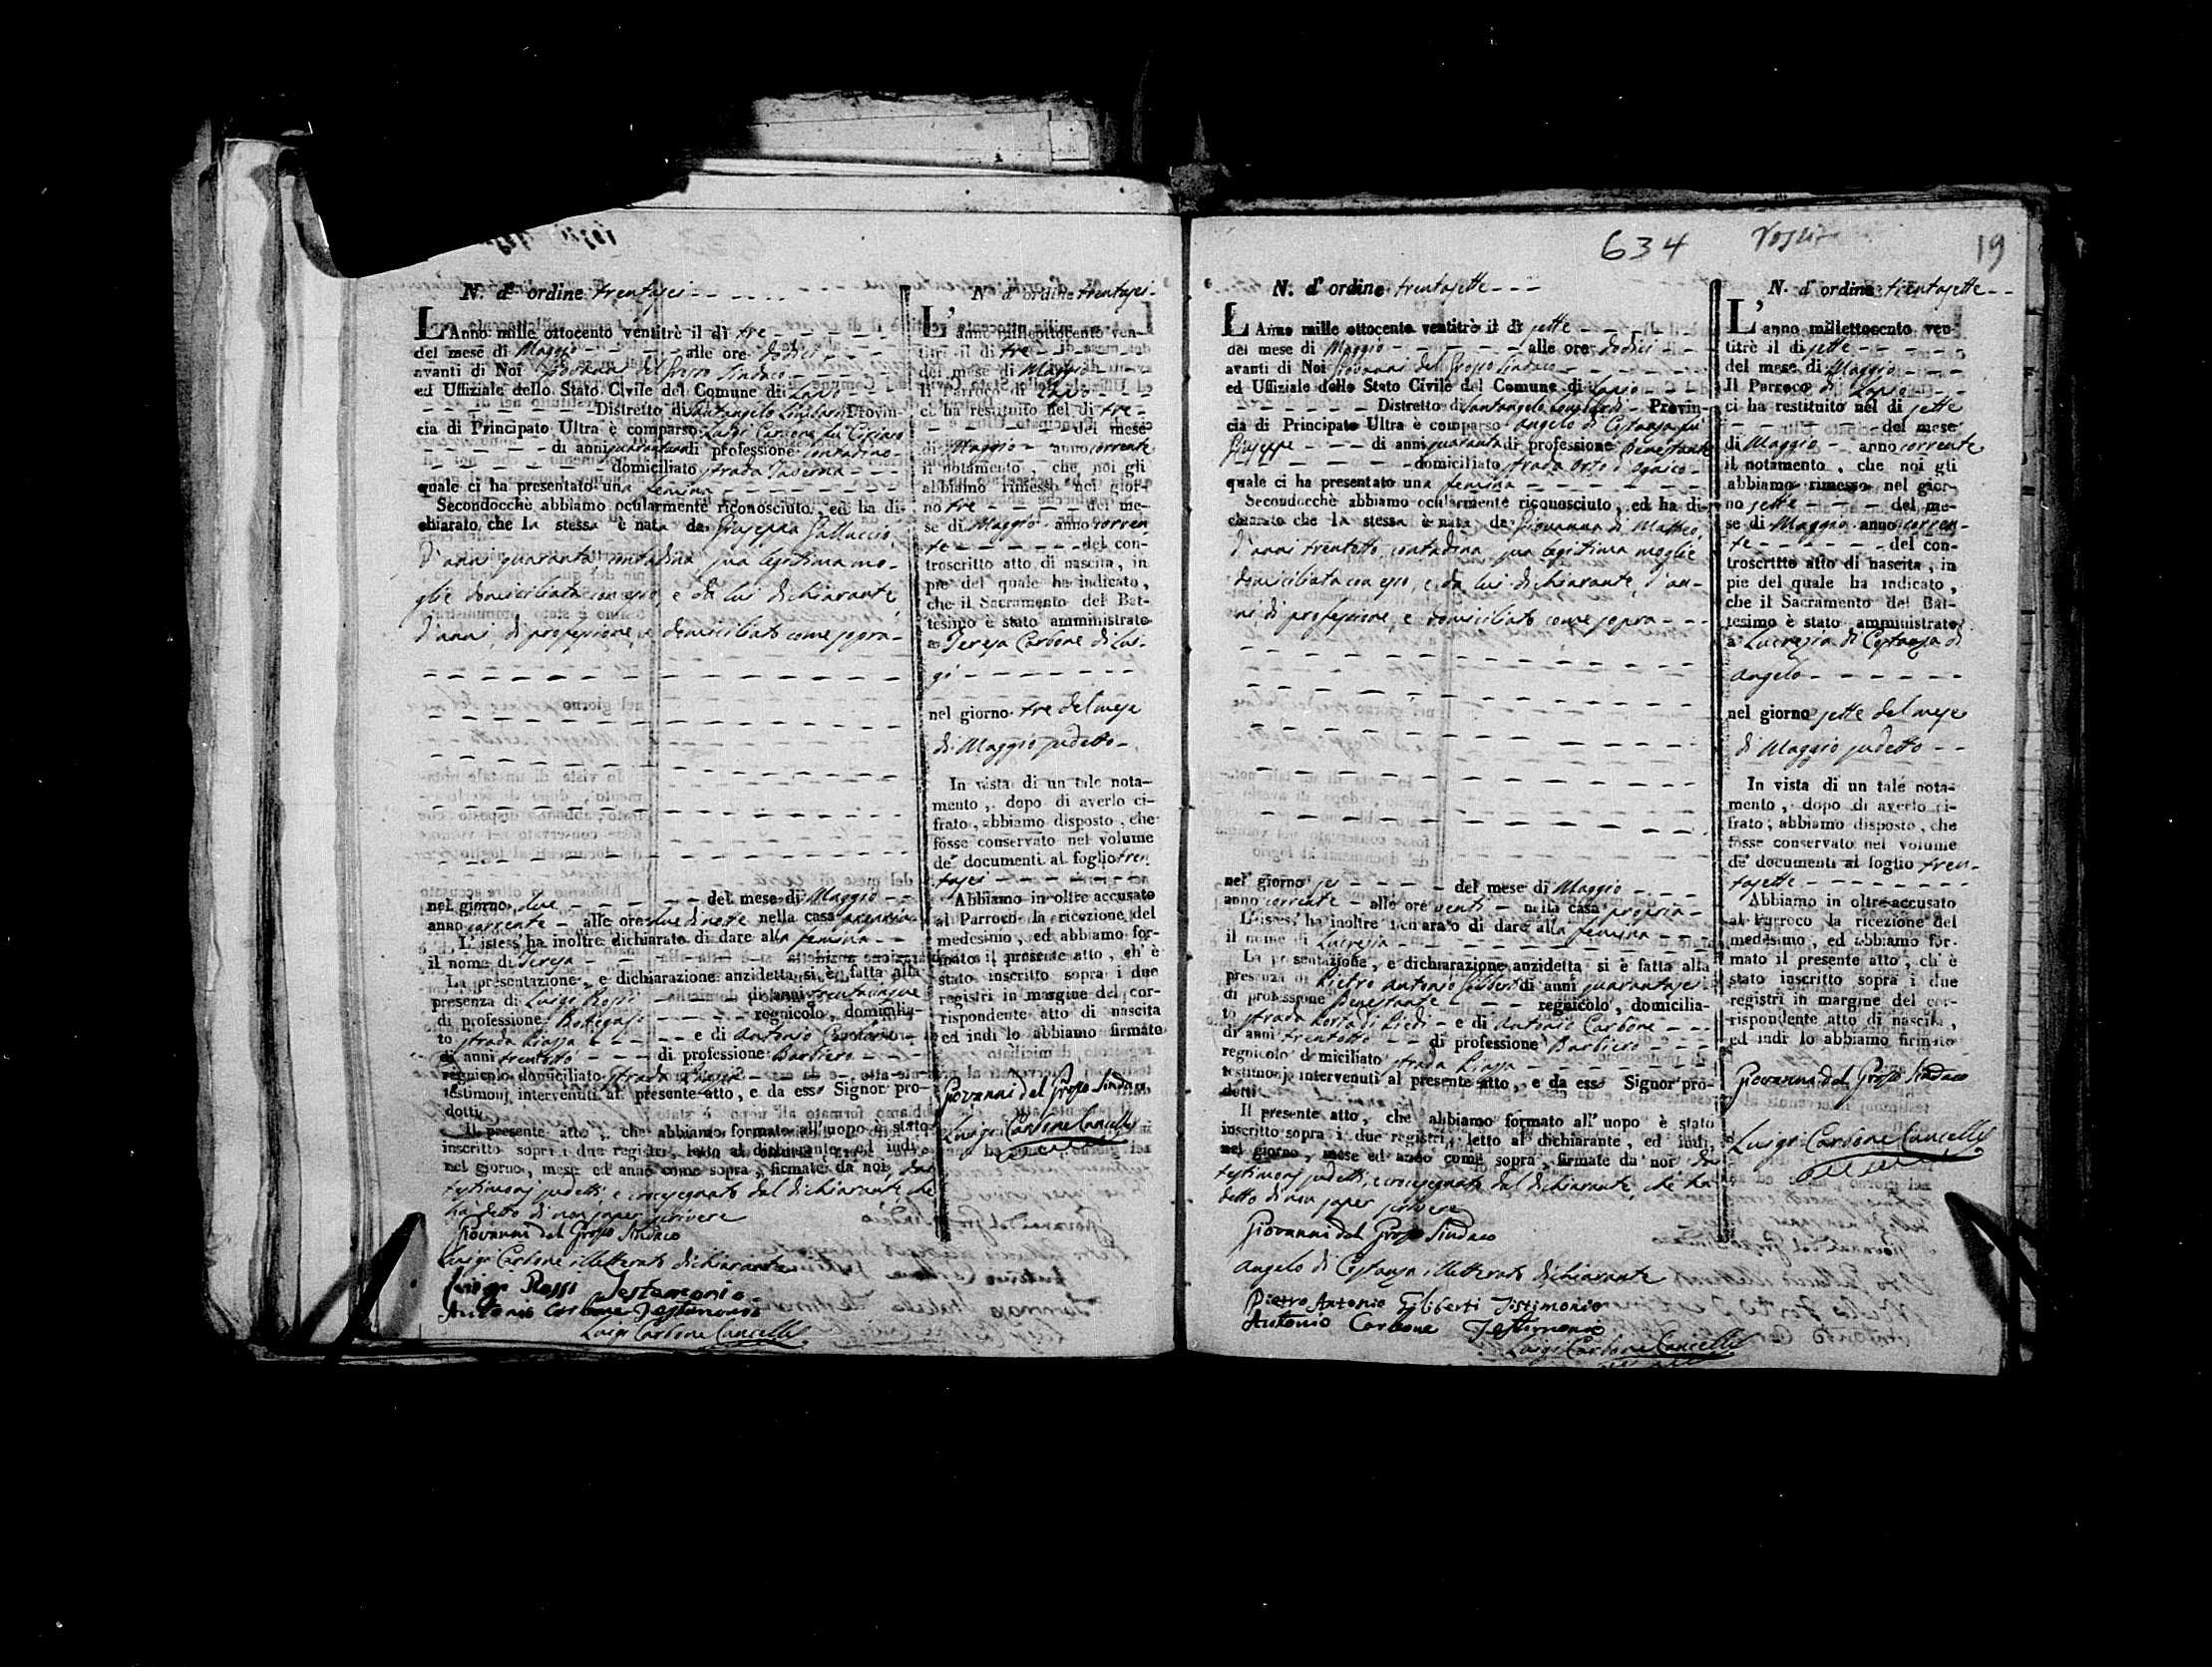 N. d' ordine trentasei
L'Anno mille ottocento ventitrè il dì tre
del mese di Maggio alle ore dodici
avanti di Noi Giovanni del Grosso Sindaco
ed Uffiziale dello Stato Civile del Comune di
Distretto di Santangelo Lombardi Provin-
cia di Principato Ultra è comparso Luigi Carbone fu
di anni di professione contadino
domiciliato strada Taverna
quale ci ha presentato una femina
Secondocchè abbiamo ocularmente riconosciuto, ed ha di-
chiarato che la stessa è nata da Giuseppa Galluccio,
d'anni quaranta contadina sua legittima mo-
glie domiciliata con esso, e da lui dichiarante,
d'anni, di professione, e domiciliato come sopra
nel giorno due del mese di Maggio
anno corrente alle ore due di notte nella casa propria
L'istess' ha inoltre dichiarato di dare alla femina
il nome di Teresa
La presentazione, e dichiarazione anzidetta si è fatta alla
presenza di Luigi Rossi di anni trentacinque
di professione Bottegaio regnicolo, domicilia-
to strada Piazza e di Antonio Carbone
di anni trentotto di professione Barbiere
regnicolo domiciliato strada Piazza
testimonj intervenuti al presente atto, e da esso Signor pro-
dotti.
Il presente atto, che abbiamo formato all'uopo è stato
inscritto sopra i due registri, letto al dichiarante, ed indi,
nel giorno, mese ed anno come sopra, firmato da noi, da
testimonj sudetti, e crocesegnato dal dichiarante che
ha detto di non saper scrivere
Giovanni del Grosso Sindaco
Luigi Carbone illetterato dichiarante
Luigi Rossi Testamonio
Antonio Carbone Testimonio
Luigi Carbone Cancell
N. d' ordine trentasei
L' anno milleottocento ven-
titrè il di tre
del mese di Maggio
Il Parroco di
ci ha restituito nel di tre
del mese
di Maggio anno corrente
il notamento, che noi gli
abbiamo rimesso nel gior-
no tre del me-
se di Maggio anno corren-
te del con-
troscritto atto di nascita, in
pie del quale ha indicato,
che il Sacramento del Bat-
tesimo è stato amministrato
a Teresa Carbone di Lui-
gi
nel giorno tre del mese
di Maggio sudetto
In vista di un tale nota-
mento, dopo di averlo ci-
frato, abbiamo disposto, che
fosse conservato nel volume
de' documenti al foglio tren
tasei
Abbiamo in oltre accusato
al Parroco la ricezione del
medesimo, ed abbiamo for-
mato il presente atto, ch' è
stato inscritto sopra i due
registri in margine del cor-
rispondente atto di nascita
ed indi lo abbiamo firmato
Giovanni del Grosso Sindaco
Luigi Carbone Cancell
634
19
N. d' ordine trentasette
L'Anno mille ottocento ventitrè il dì sette
del mese di Maggio alle ore dodici
avanti di Noi Giovanni del Grosso Sindaco
ed Uffiziale dello Stato Civile del Comune di
Distretto di Santangelo Lombardi Provin-
cia di Principato Ultra è comparso Angelo di Costanza fu
Giuseppe di anni quaranta di professione Benestante
domiciliato strada
quale ci ha presentato una femina
Secondocchè abbiamo ocularmente riconosciuto, ed ha di-
chiarato che la stessa è nata da Giovanna di Matteo,
d'anni trentotto, contadina sua legittima moglie
domiciliata con esso, e da lui dichiarante, d'an-
ni di professione, e domiciliato come sopra
nel giorno sei del mese di Maggio
anno corrente alle ore venti nella casa propria
L'istess' ha inoltre dichiarato di dare alla femina
il nome di Lucrezia
La presentazione, e dichiarazione anzidetta si è fatta alla
presenza di Pietro Antonio Giliberti di anni quarantasei
di professione Benestante regnicolo, domicilia-
to strada Porta di Piedi e di Antonio Carbone
di anni trentotto di professione Barbiere
regnicolo domiciliato strada Piazza
testimonj intervenuti al presente atto, e da esso Signor pro-
dotti
Il presente atto, che abbiamo formato all'uopo è stato
inscritto sopra i due registri, letto al dichiarante, ed indi,
nel giorno, mese ed anno come sopra, firmato da noi da
testimonj sudetti, e crocesegnato dal dichiarante, che ha
detto di non saper scrivere
Giovanni del Grosso Sindaco
Angelo di Costanza illetterato dichiarante
Pietro Antonio Giliberti Testimonio
Antonio Carbone Testimonio
Luigi Carbone Cancell
N. d' ordine trentasette
L' anno milleottocento ven-
titrè il di sette
del mese di Maggio
Il Parroco di
ci ha restituito nel di sette
del mese
di Maggio anno corrente
il notamento, che noi gli
abbiamo rimesso nel gior-
no sette del me-
se di Maggio anno corren-
te del con-
troscritto atto di nascita, in
pie del quale ha indicato,
che il Sacramento del Bat-
tesimo è stato amministrato
a Lucrezia di Costanza di
Angelo
nel giorno sette del mese
di Maggio sudetto
In vista di un tale nota-
mento, dopo di averlo ci-
frato, abbiamo disposto, che
fosse conservato nel volume
de' documenti al foglio tren-
tasette
Abbiamo in oltre accusato
al Parroco la ricezione del
medesimo, ed abbiamo for-
mato il presente atto, ch' è
stato inscritto sopra i due
registri in margine del cor-
rispondente atto di nascita,
ed indi lo abbiamo firmato
Giovanni del Grosso Sindaco
Luigi Carbone Cancell